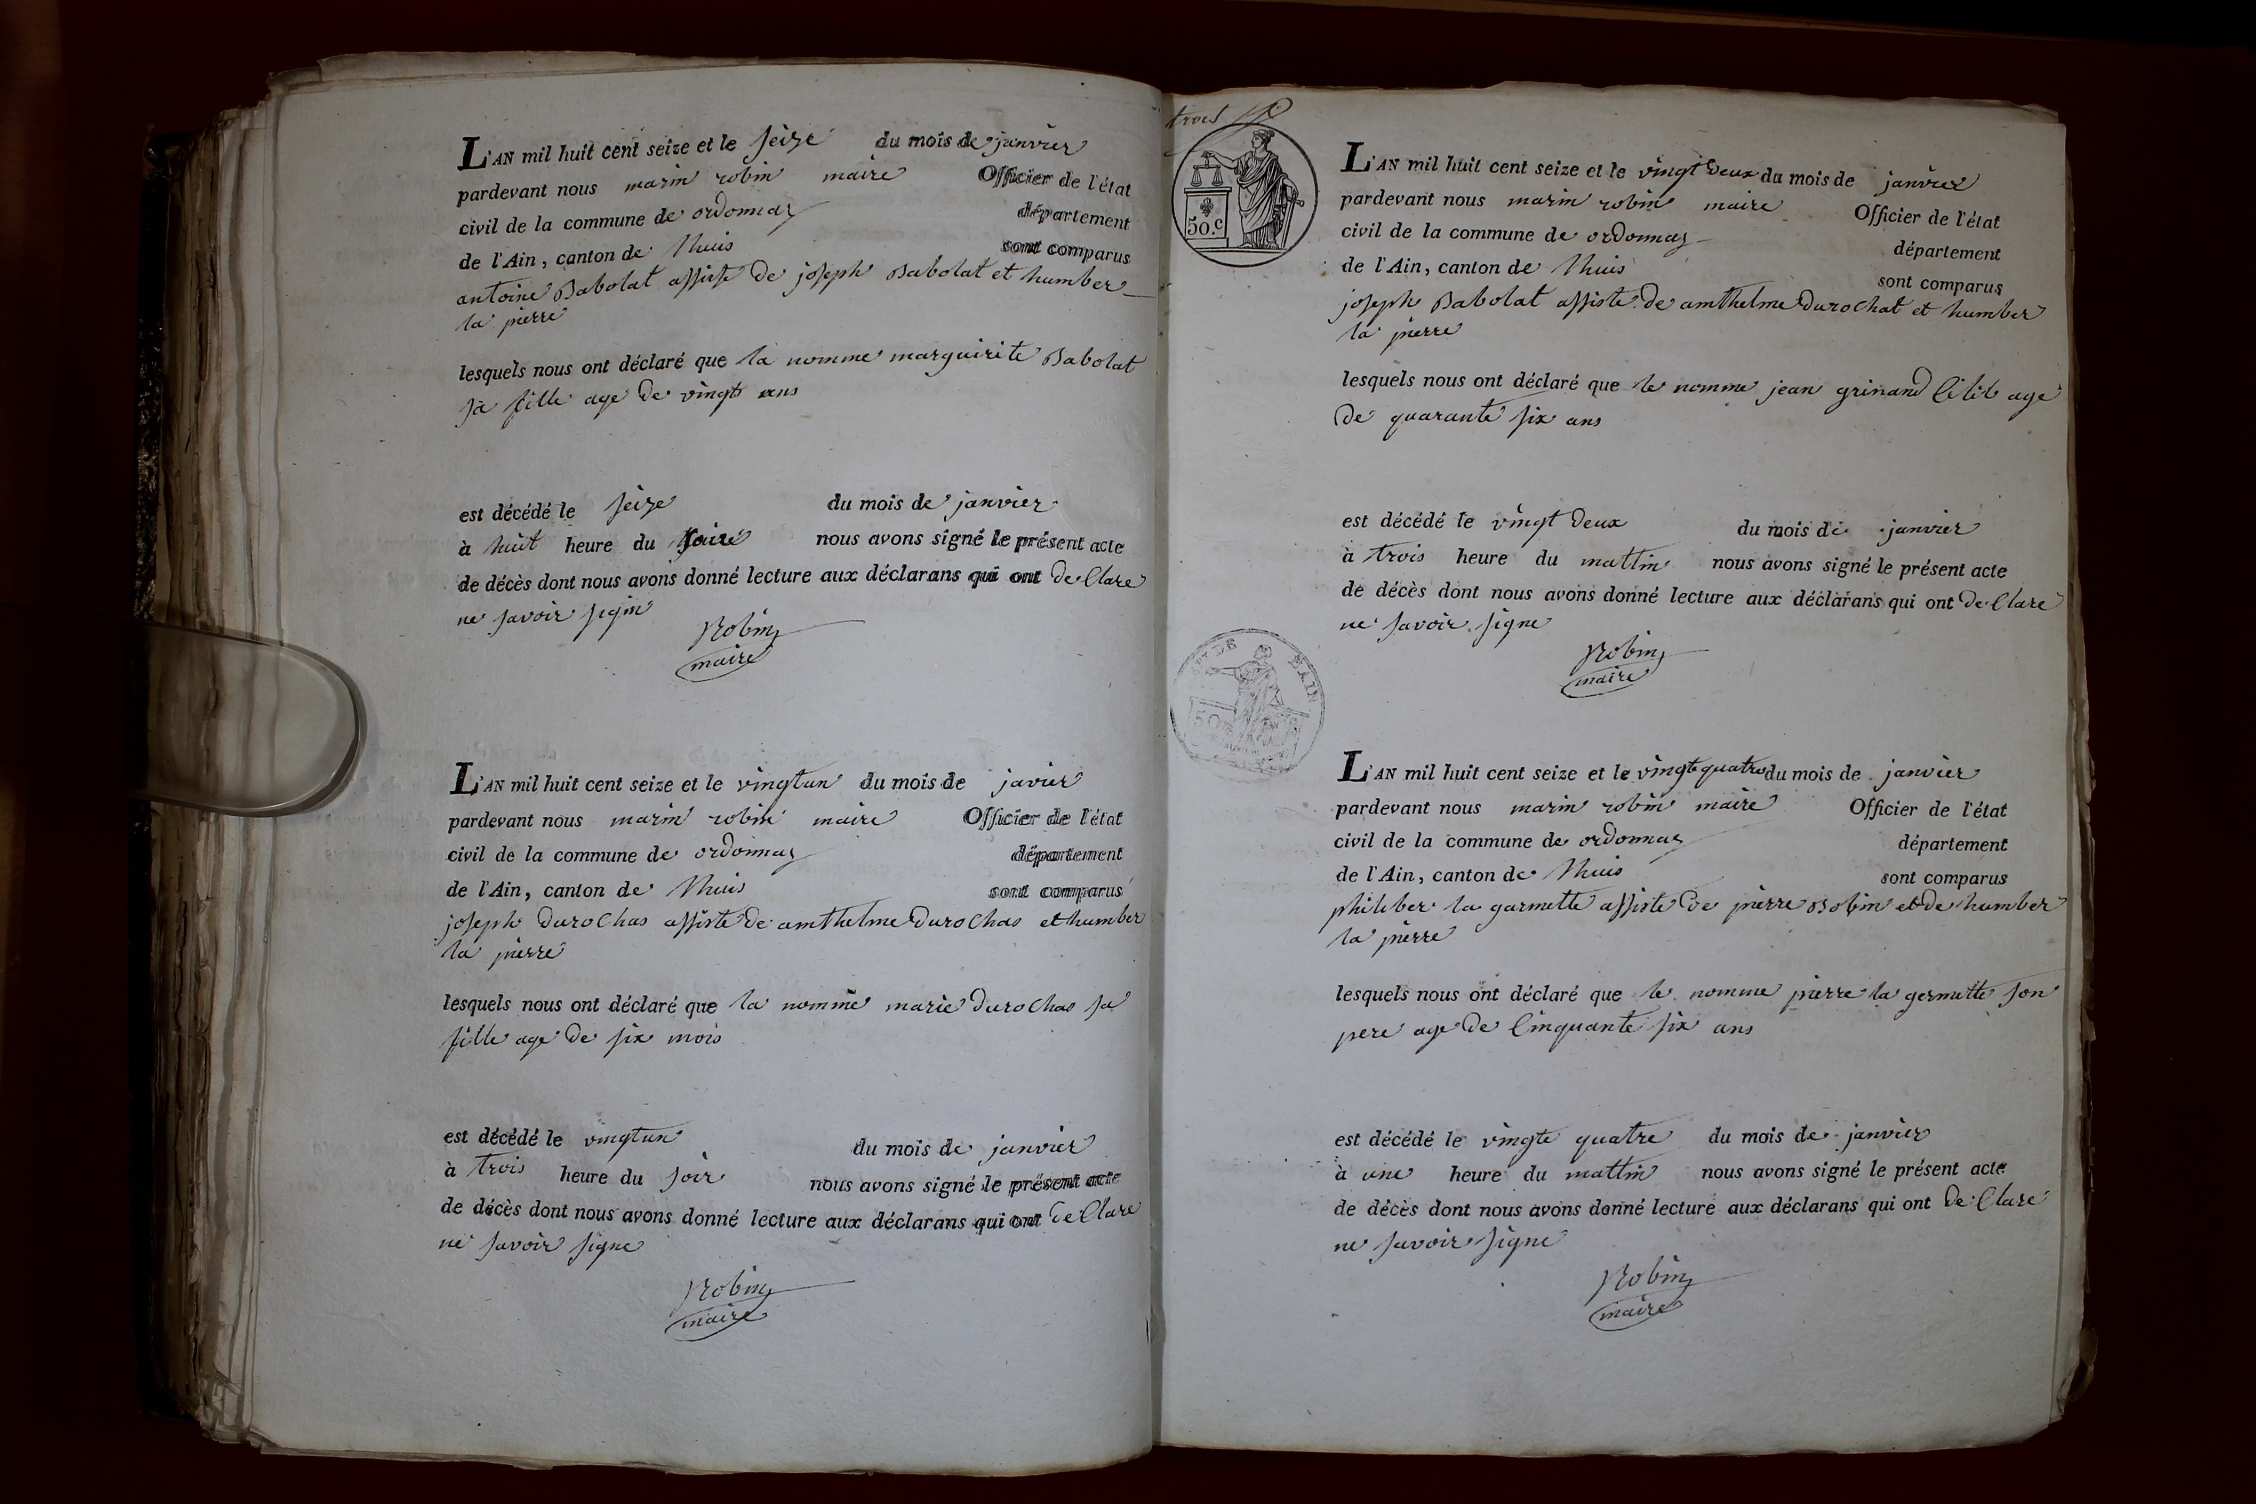 L'AN mil huit cent seize et le seize du mois de janvier
pardevant nous marin robin maire Officier de l'état
civil de la commune de ordonnaz département
de l'Ain, canton de lhuis sont comparus
antoine Babolat assiste de joseph Babolat et humber
la pierre
lesquels nous ont déclaré que la nomme marguirite Babolat
sa fille age de vingt ans
est décédé le seize du mois de janvier
à huit heure du soire nous avons signé le présent acte
de décès dont nous avons donné lecture aux déclarans qui ont de Clare
ne savoir signe
Robin
maire
L'AN mil huit cent seize et le vingtun du mois de javier
pardevant nous marin robin maire Officier de l'état
civil de la commune de ordonnaz département
de l'Ain, canton de lhuis sont comparus
joseph duroChas assiste de amthelme duroChas et humber
la pierre
lesquels nous ont déclaré que la nomme marie duroChas sa
fille age de six mois
est décédé le vingtun du mois de janvier
à trois heure du soir nous avons signé le présent acte
de décès dont nous avons donné lecture aux déclarans qui ont de Clare
ne savoir signe
Robin
maire
trois
50.c
L'AN mil huit cent seize et le vingt deux du mois de janvier
pardevant nous marin robin maire Officier de l'état
civil de la commune de ordonnaz département
de l'Ain, canton de lhuis sont comparus
joseph Babolat assiste de amthelme duroChat et humber
la pierre
lesquels nous ont déclaré que le nomme jean grinand age
de quarante six ans
est décédé le vingt deux du mois de janvier
à trois heure du mattin nous avons signé le présent acte
de décès dont nous avons donné lecture aux déclarans qui ont de Clare
ne savoir signe
Robin
maire
L'AN mil huit cent seize et le vingte quatre du mois de janvier
pardevant nous marin robin maire Officier de l'état
civil de la commune de ordonnaz département
de l'Ain, canton de lhuis sont comparus
philiber la garmette assiste de pierre Bobin et de humber
la pierre
lesquels nous ont déclaré que le nomme pierre la germette son
pere age de Cinquante six ans
est décédé le vingte quatre du mois de janvier
à une heure du mattin nous avons signé le présent acte
de décès dont nous avons donné lecture aux déclarans qui ont de Clare
ne savoir signe
Robin
maire